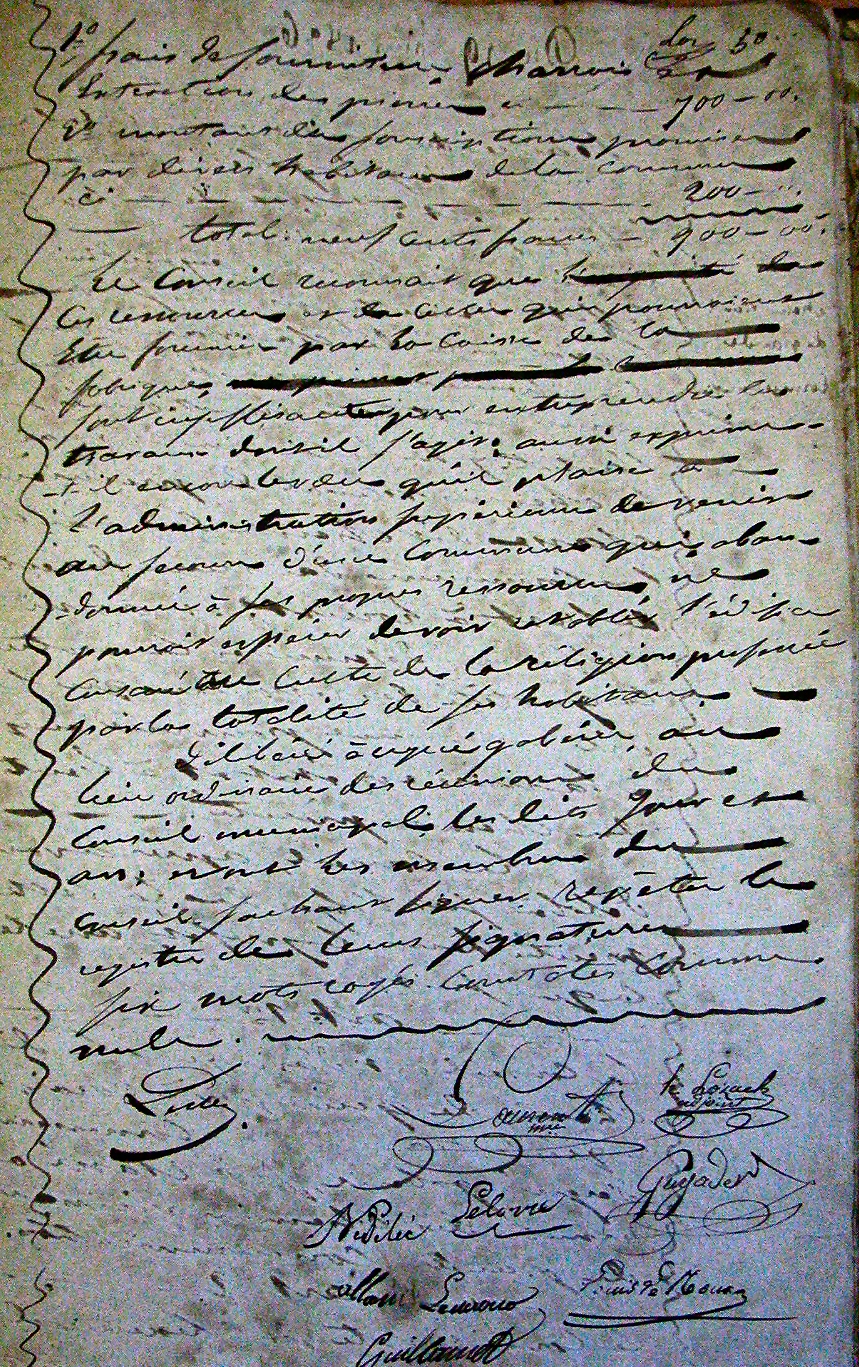 1º frais de fourniture, charrois &
Extraction des pierres ci — 700-00.
2º montant des souscriptions promises
par divers habitans de la commune
ci — 200-
total: neuf cents francs — 900-00.
Le Conseil reconnait que
ces ressources et de celles qui pourraient
Etre fournies par la caisse de la
fabrique,
sont insuffisantes pour entreprendre les
travaux dont il s'agit; aussi exprime-
-t-il encore le vœu qu'il plaise à
l'administration supérieure de venir
au secours d'une Commune qui, aban-
-donnée à ses propres ressources, ne
pourrait espérer de voir rétablir l'édifice
Consacré au Culte de la réligion professée
par la totalité de ses habitans.
Délibéré à ergué gabéric, au
lieu ordinaire des réunions du
Conseil municipal les dits Jour et
an; et ont les membres du
Conseil sachant signer le
registre de leurs signatures
six mots rayés comme
nuls.
Laurent
mre
adjoint
Guyader
Nédélec
Allain
Guillamot